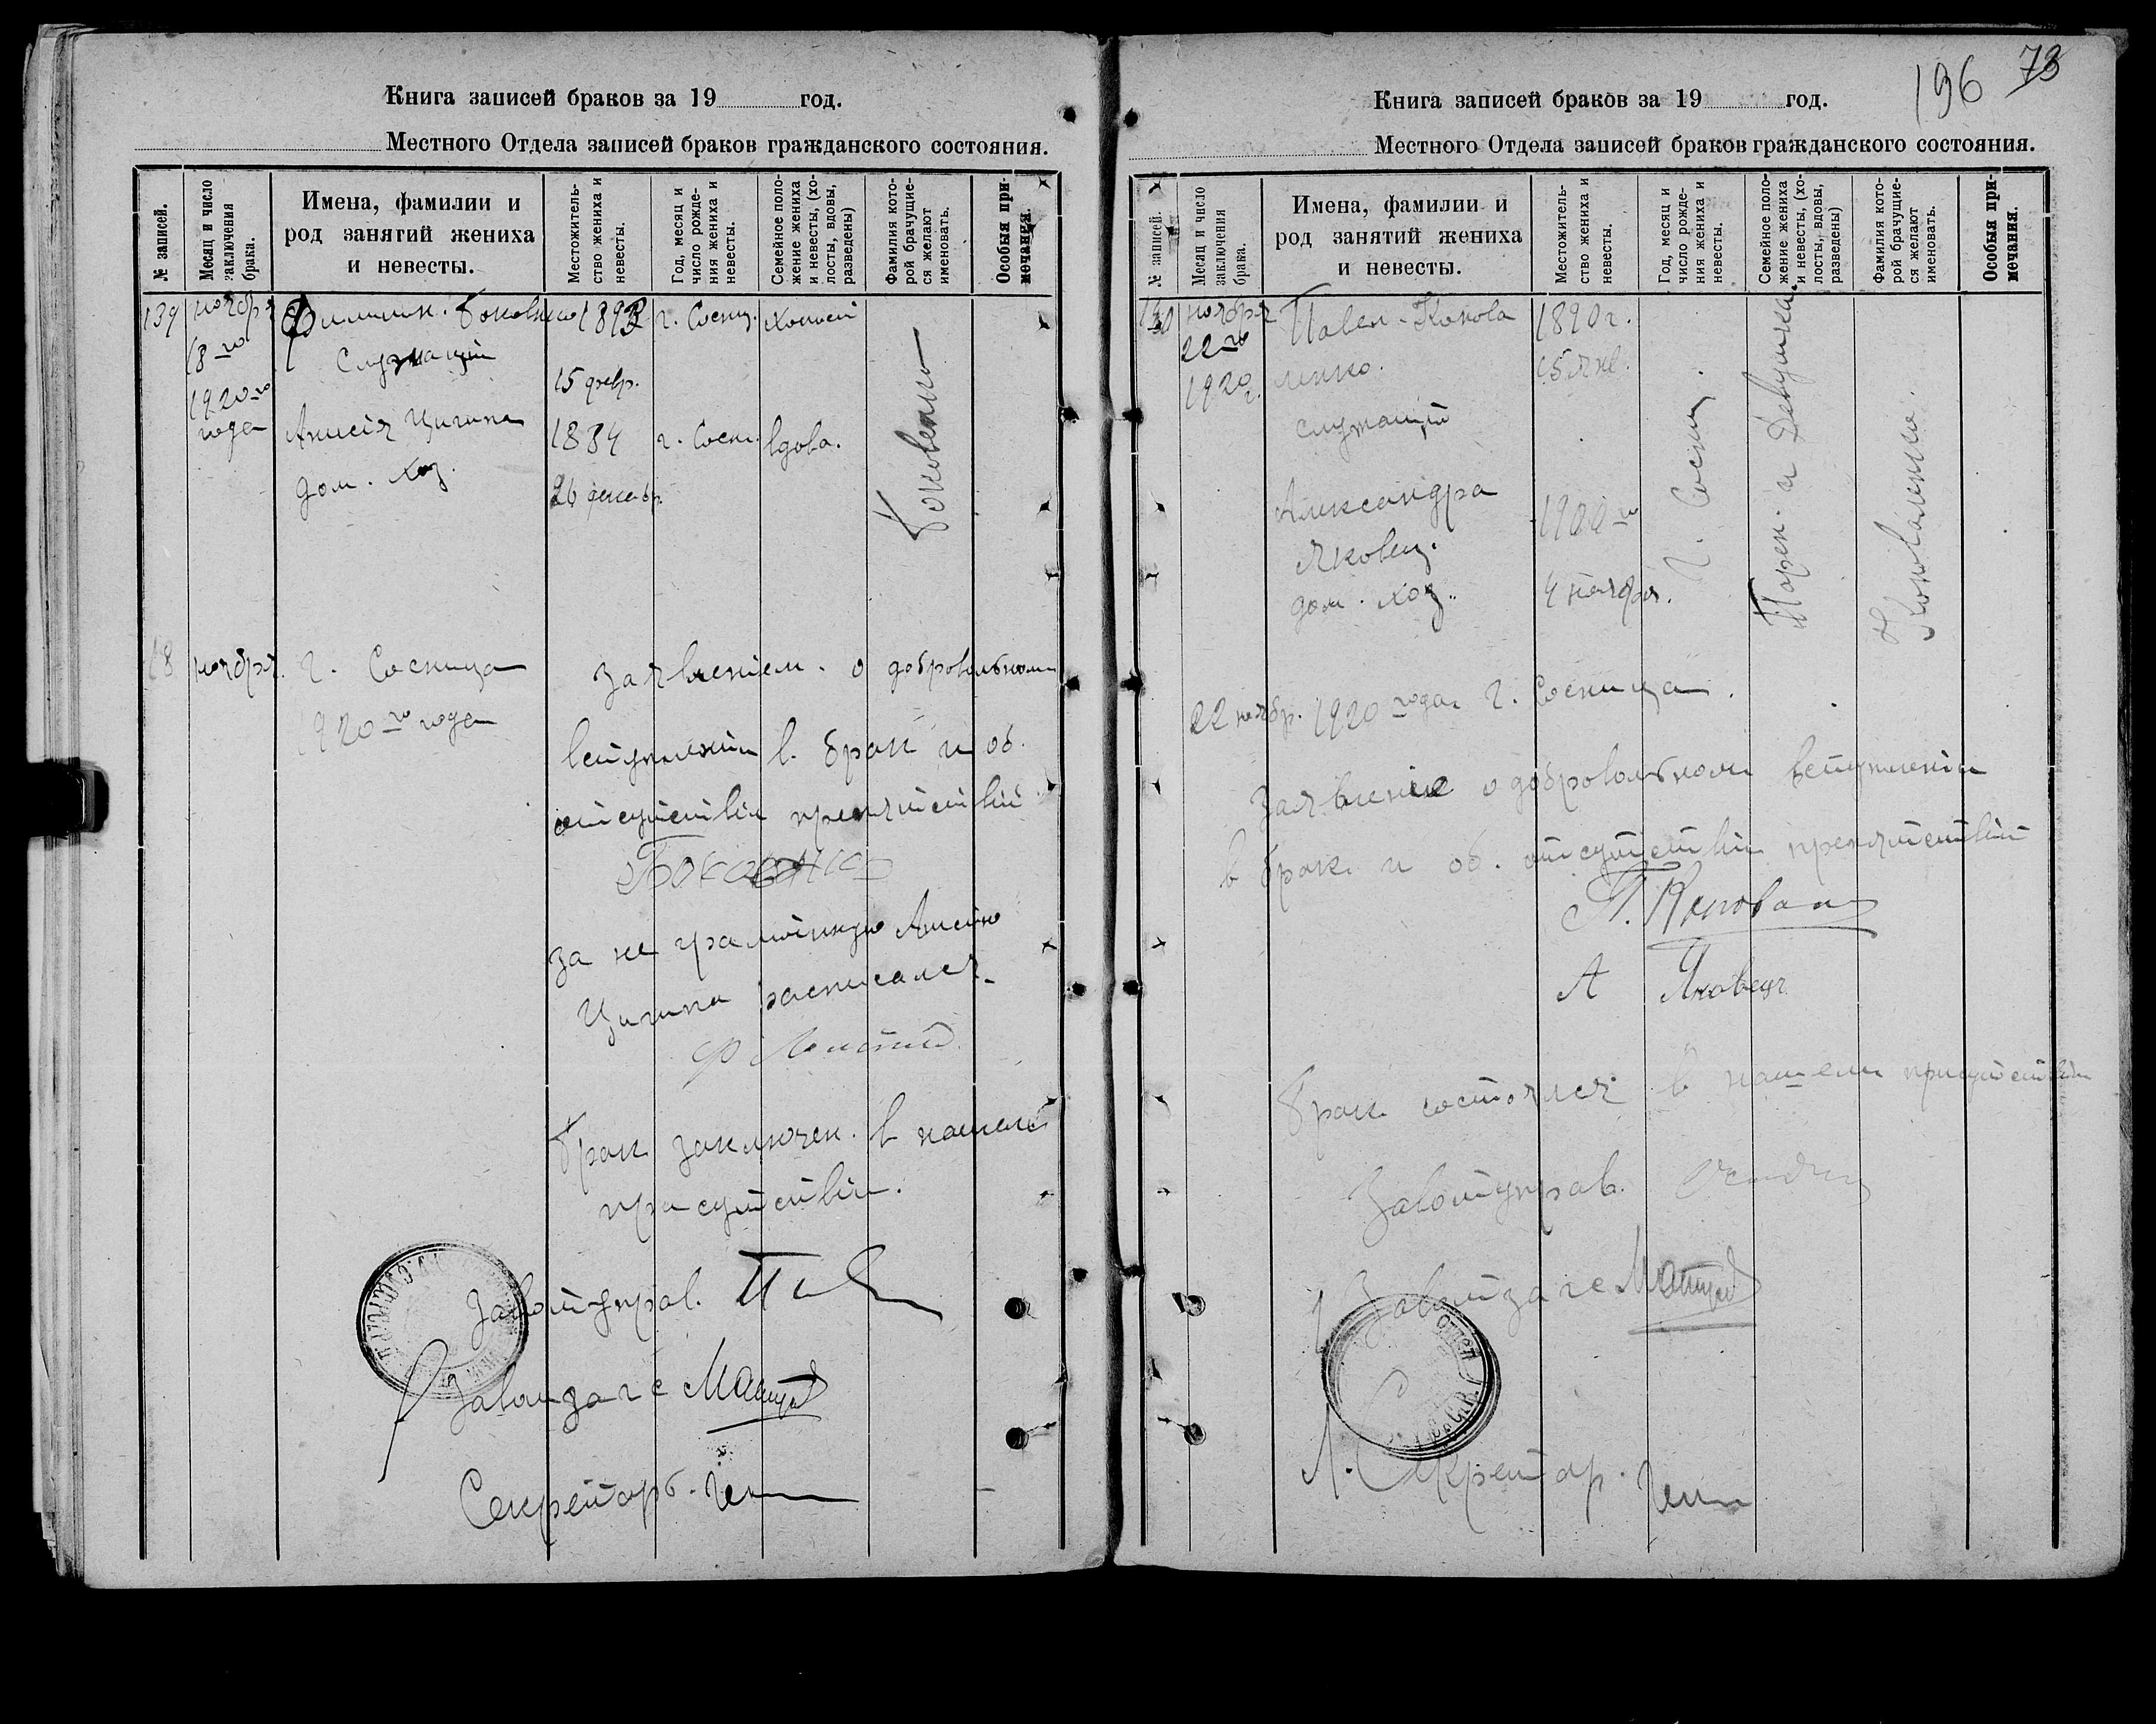 Книга записей браков за 19 год.
Местного Отдела записей браков гражданского состояния.
№ записей.
Месяц и число заключения брака.
Имена, фамилии и род занятий жениха и невесты.
Местожитель-ство жениха и невесты.
Год, месяц и число рожде-ния жениха и невесты.
Семейное поло-жение жениха и невесты, (хо-лосты, вдовы, разведены)
Фамилия кото-рой брачущие-ся желают именовать.
Особыя при-мечания.
139 ноября Филипп. Боковенко 1893 г. Сосниц. холост
18-го Служащий
15 февр.
1920-го
года Анисія Цигипа 1884 г. Сосн. вдова.
дом. хоз. 26 декабр.
Боковенко
18 ноября г. Сосница
1920-го года
Заявленіем о добровольном
вступленіи в брак и об.
отсутствіи препятствій
Боковенко
За не грамотную Анисію
Цигипа расписался
Брак заключен. в нашем
присутствіи.
Завотуправ.
Завотзагс
Секретарь.
196 73
Книга записей браков за 19 год.
Местного Отдела записей браков гражданского состояния.
№ записей.
Месяц и число заключения брака.
Имена, фамилии и род занятий жениха и невесты.
Местожитель-ство жениха и невесты.
Год, месяц и число рожде-ния жениха и невесты.
Семейное поло-жение жениха и невесты, (хо-лосты, вдовы, разведены)
Фамилия кото-рой брачущие-ся желают именовать.
Особыя при-мечания.
140 ноября Павел Конова 1890 г.
22-го
1920 г. ленко. 15 янв.
служащій
Александра 1900-го
Яковец.
дом. хоз. 4 ноября.
г. Сосниц.
Парен. и Девушка.
Коноваленко.
22 ноябр. 1920 года. г. Сосница.
Заявление о добровольном вступленіи
в брак и об. отсутствіи препятствій
П. Коновал
А Яковец
Брак состоялся в нашем присутствіи
Завотуправ.
Завотзагс
Секретар.